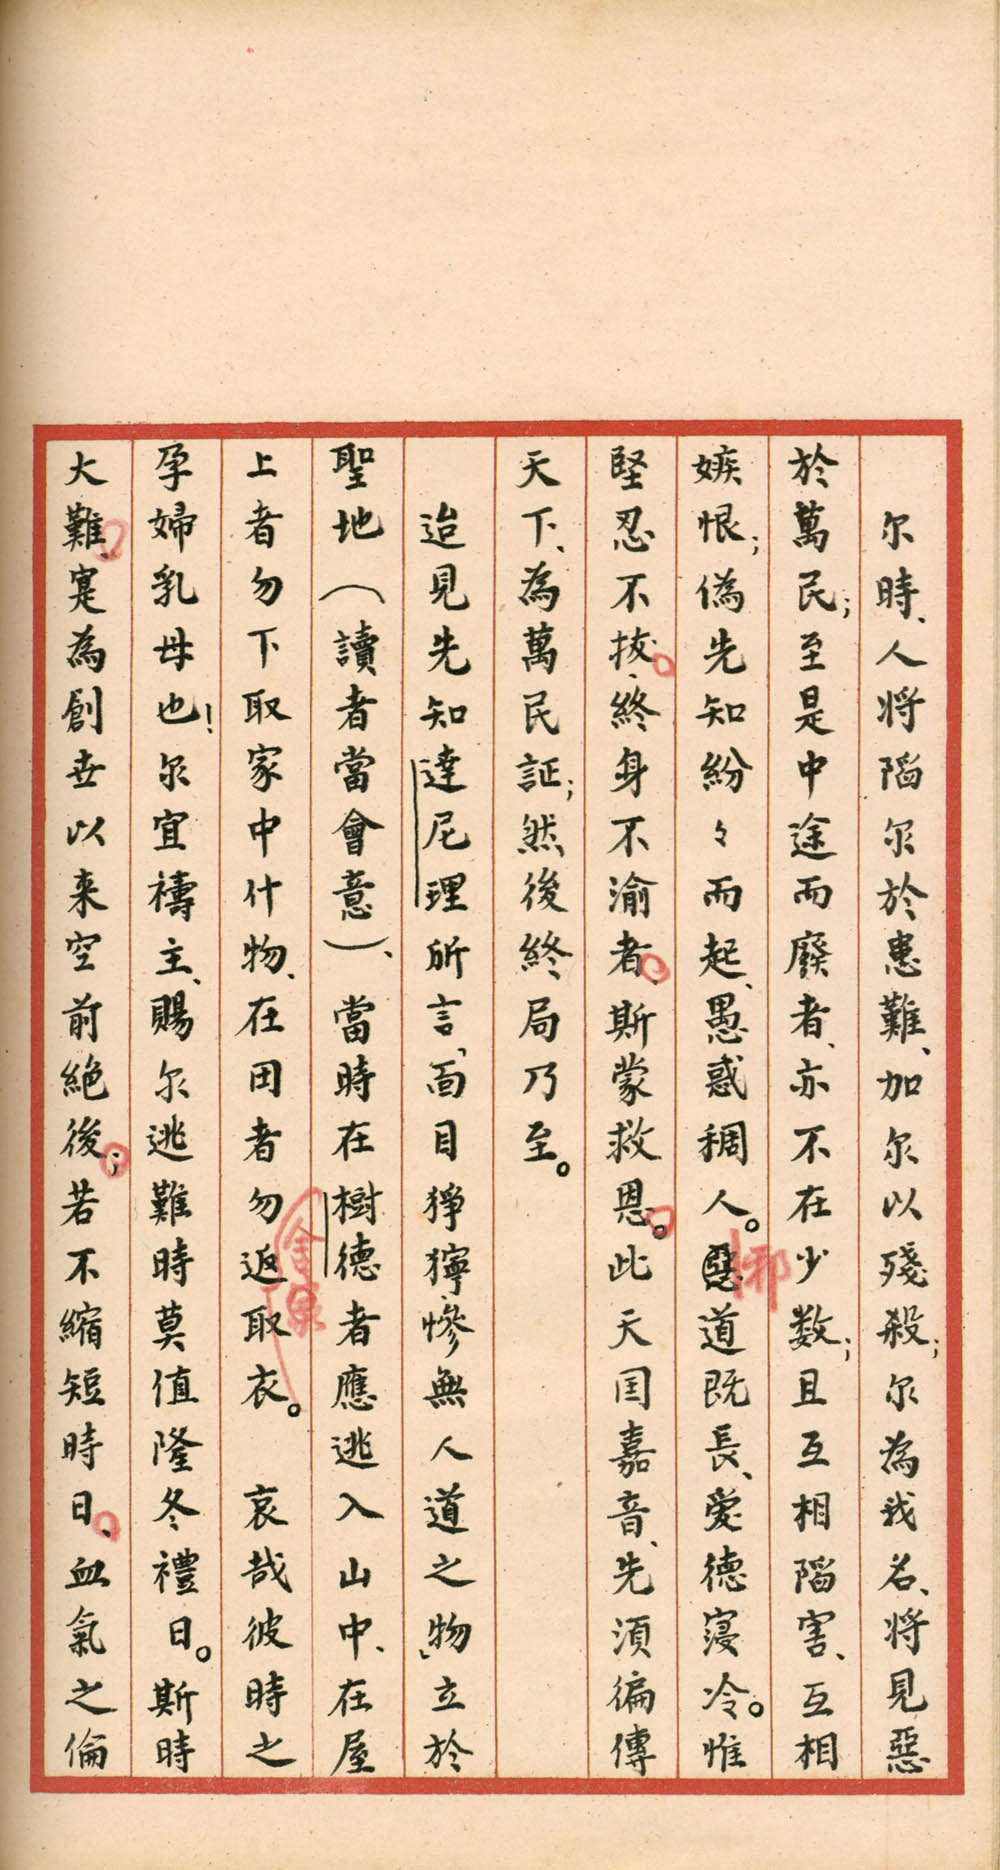 尔時、人将陷尔於患難、加尔以殘殺；尔為我名、将見惡
於萬民；至是中途而廢者、亦不在少数；且互相陷害、互相
嫉恨；偽先知紛々而起、愚惑稠人。惡道既長、愛德寖冷。惟
邪
堅忍不拔、終身不渝者、斯蒙救恩。此天国嘉音、先須徧傳
天下、為萬民証；然後終局乃至。
迨見先知達尼理所言、「面目猙獰、慘無人道之物」立於
聖地（讀者當會意）、當時在樹德者應逃入山中、在屋
上者勿下取家中什物、在田者勿返取衣。　哀哉彼時之
孕婦乳母也！尔宜禱主、賜尔逃難時莫值隆冬禮日。斯時
大難、寔為創世以来空前絕後；若不縮短時日、血氣之倫